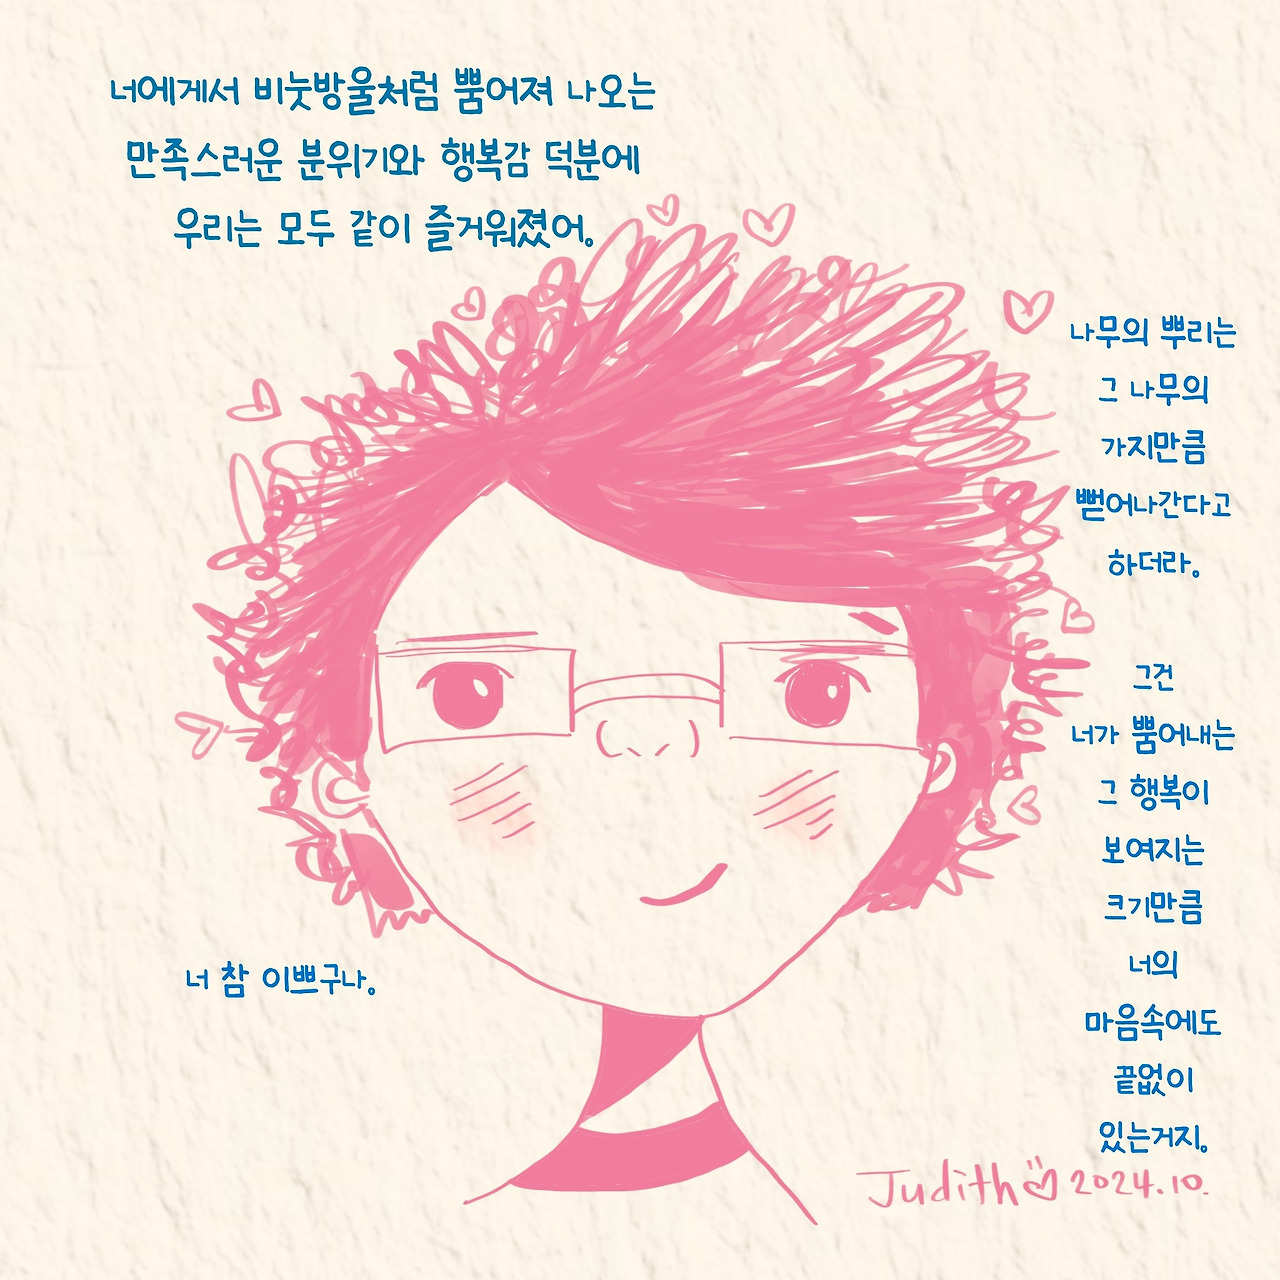 너에게서 비눗방울처럼 뿜어져 나오는
만족스러운 분위기와 행복감 덕분에
우리는 모두 같이 즐거워졌어.
나무의 뿌리는
그 나무의
가지만큼
뻗어나간다고
하더라.
그건
너가 뿜어내는
그 행복이
보여지는
크기만큼
너의
마음속에도
끝없이
있는거지.
너 참 이쁘구나.
Judith 2024.10.